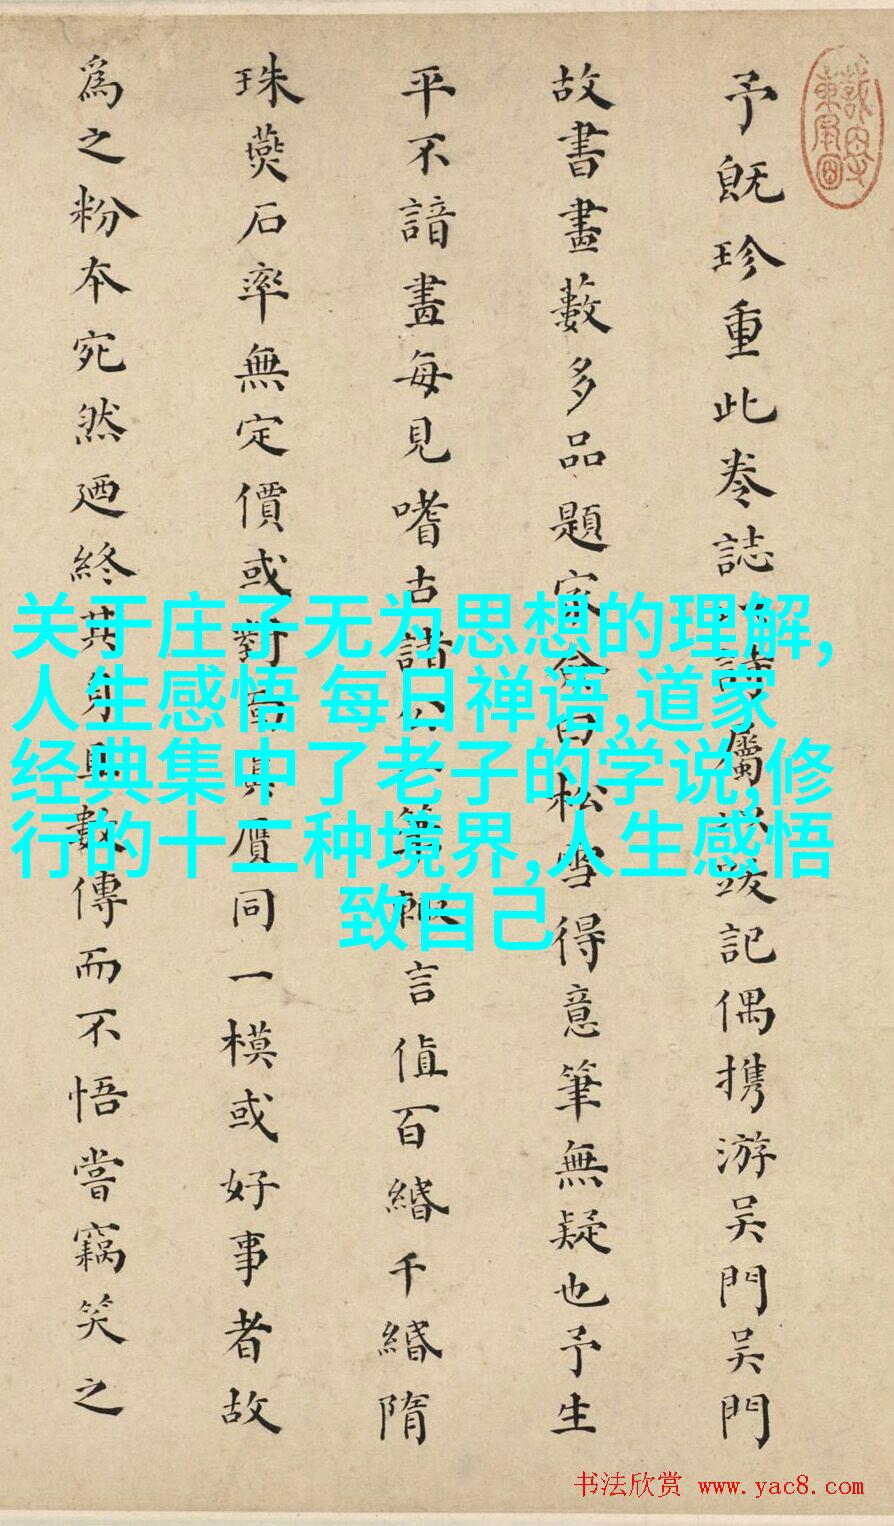 予既珍重此卷誌詩屬跋記偶携游吴門吴門
故書畫藪多品題家僉曰松雪得意筆無疑也予生
平不諳畫每見嗜古諸公一輒言值百緡千緡隋
珠燕石率無定價或對面真贋同一模或好事者故
為之粉本宛然廼終其身且數傳而不悟嘗竊笑之
关于庄子无为思想的理解,
人生感悟 每日禅语,道家
经典集中了老子的学说,修
行的十二种境界,人生感悟
致自己
书法欣赏 www.yac8.com